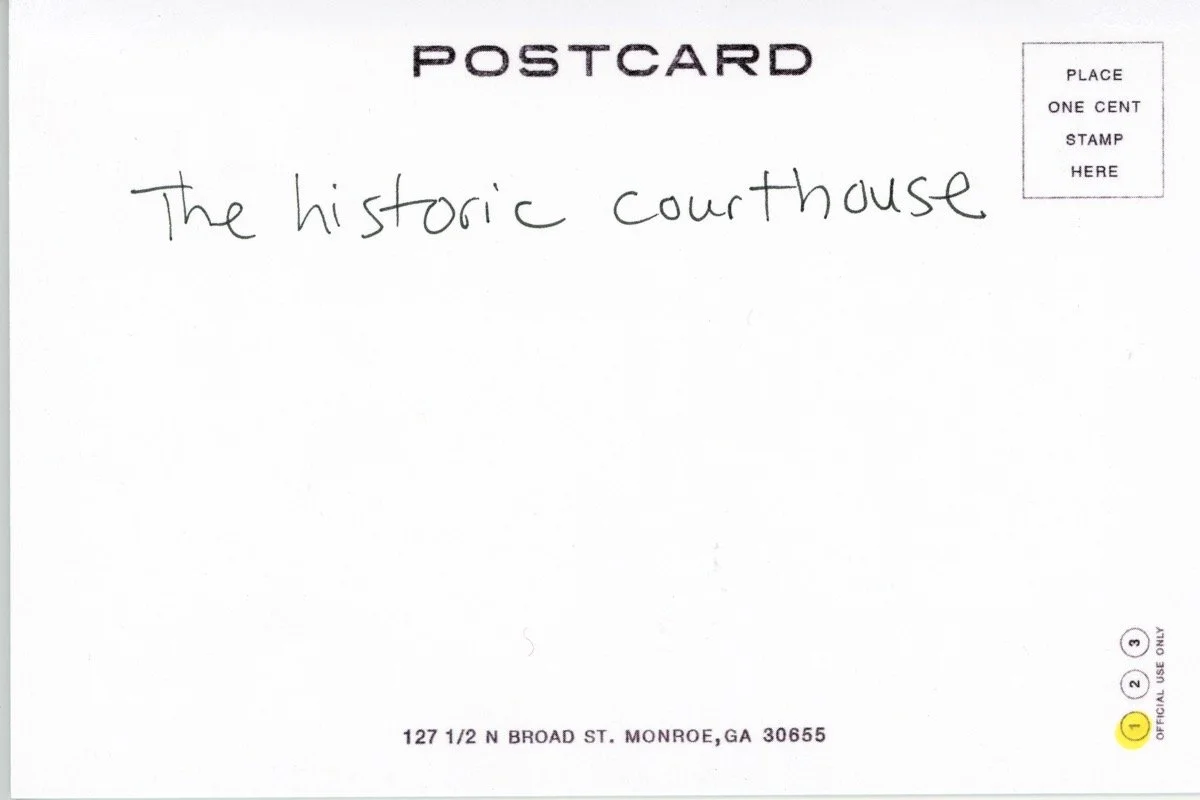 POSTCARD
PLACE
ONE CENT
STAMP
HERE
The historic courthouse
127 1/2 N BROAD ST. MONROE,GA 30655
1 2 3
OFFICIAL USE ONLY